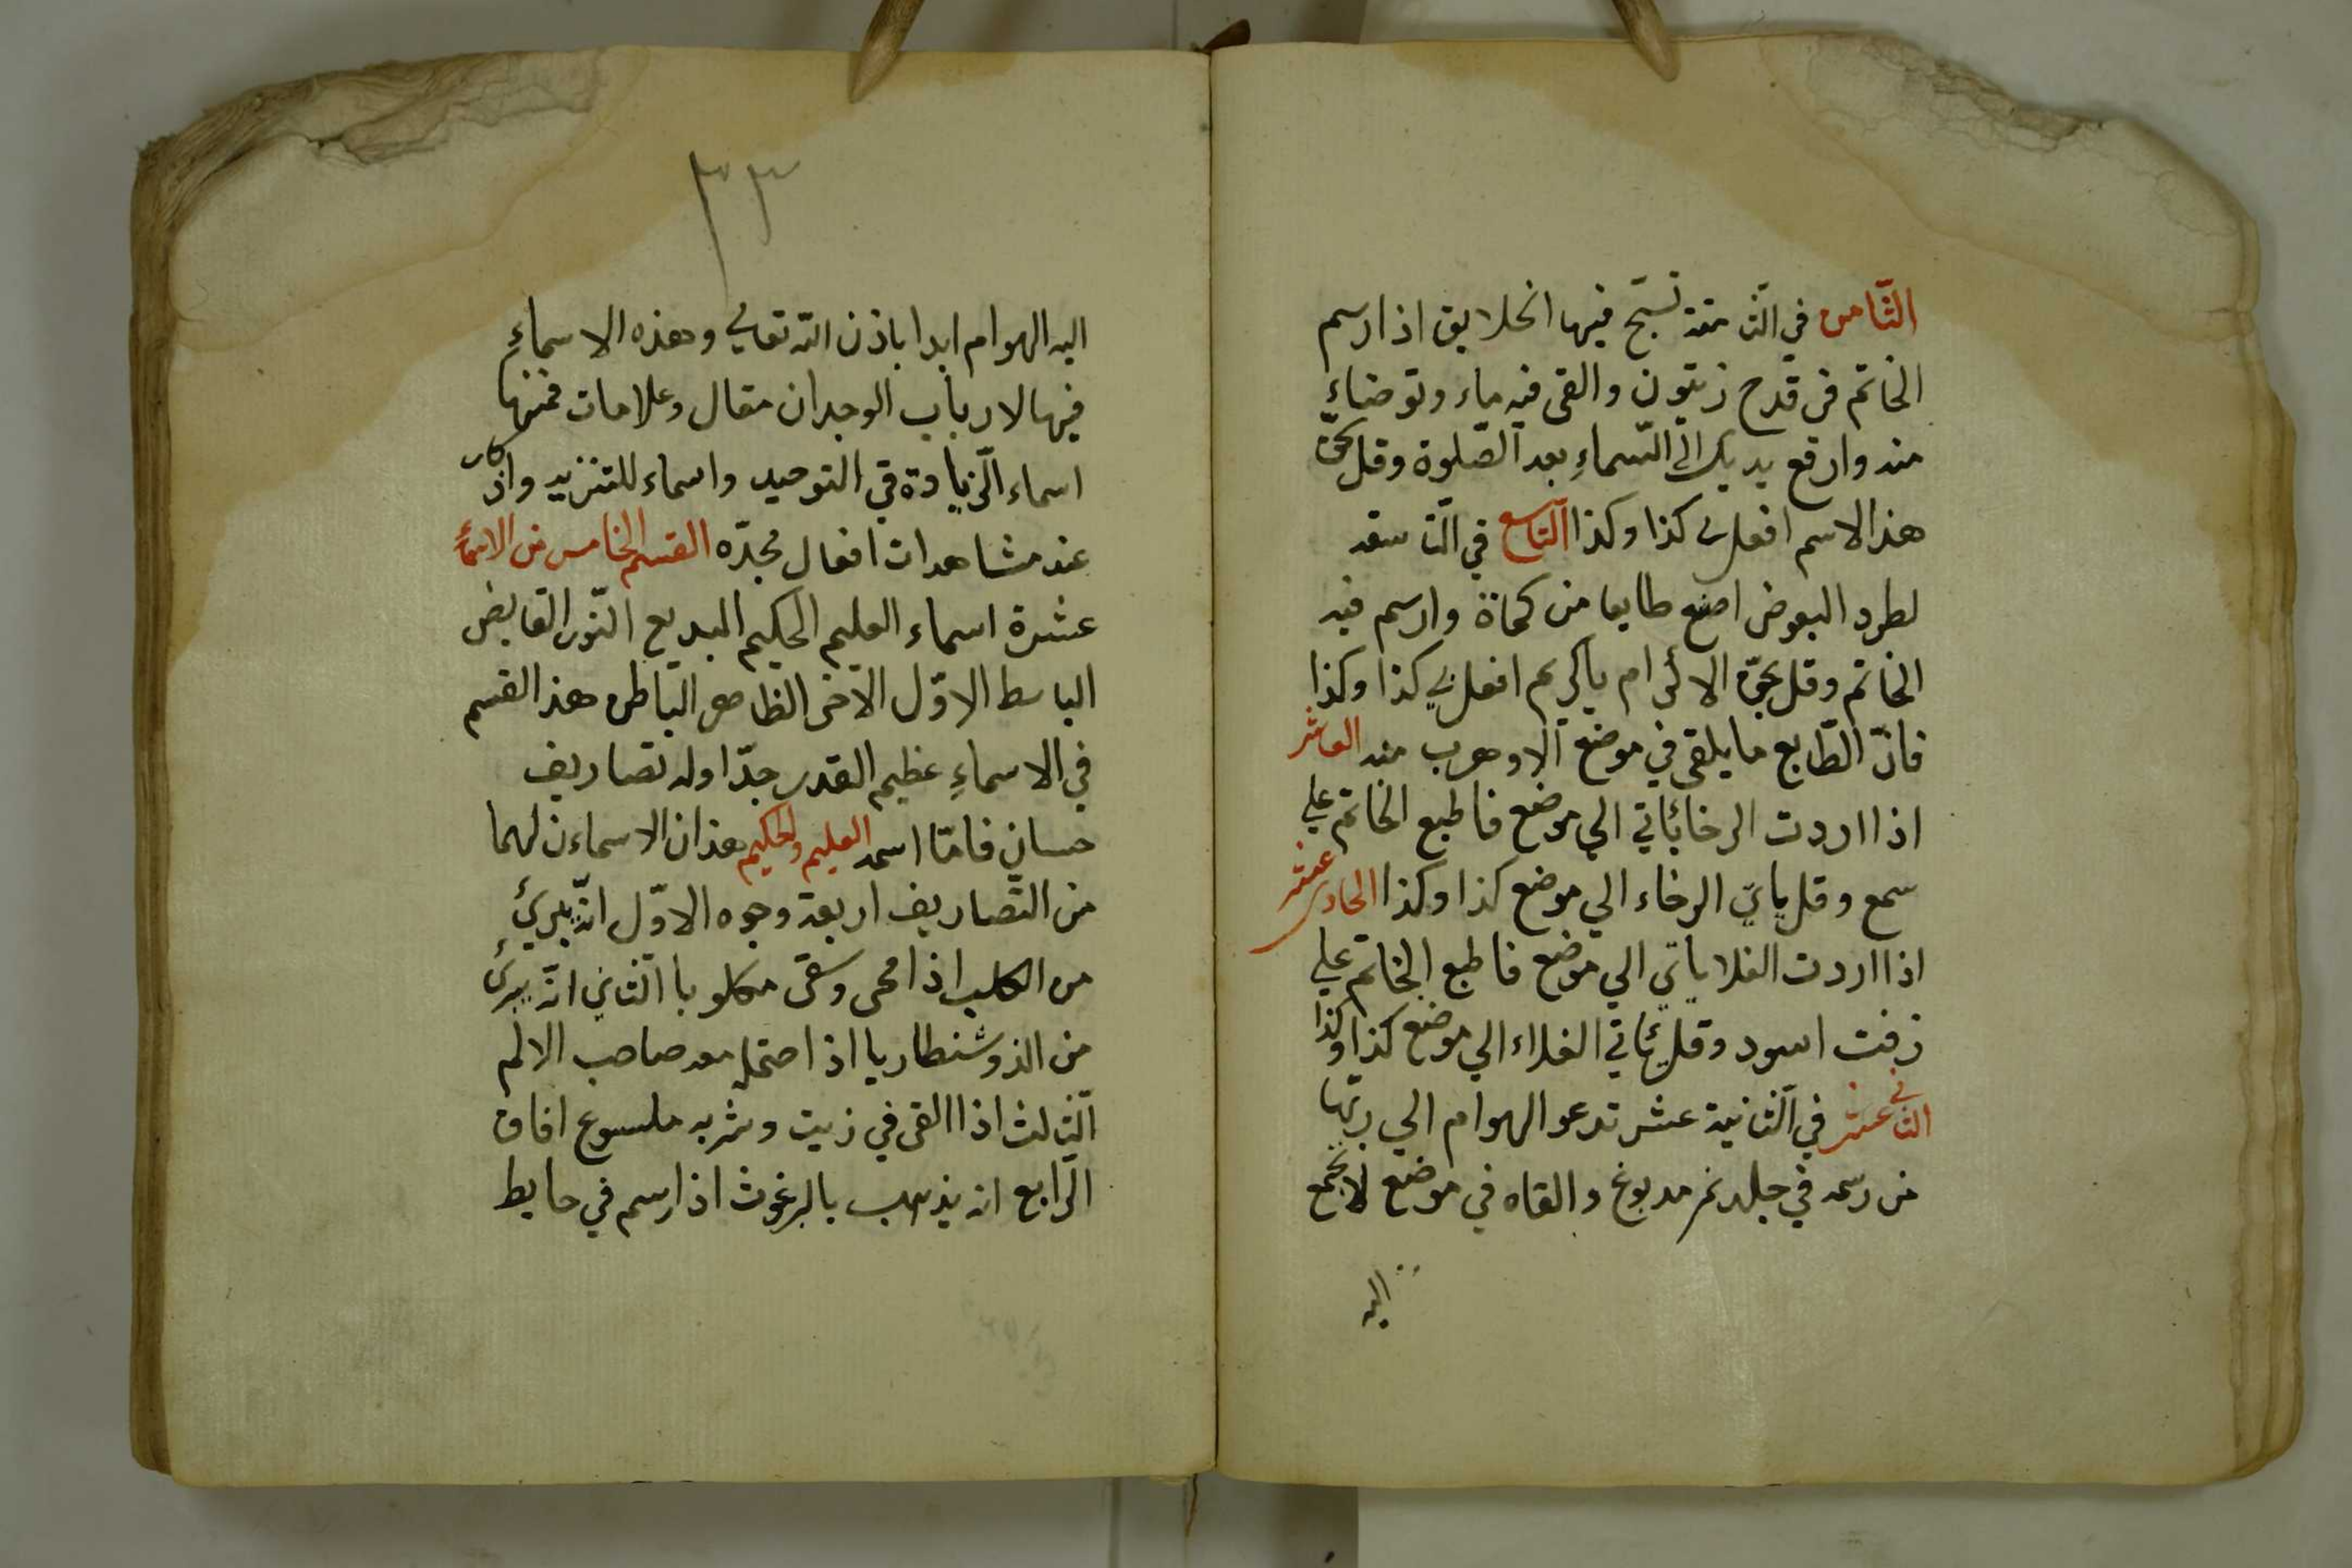 الثّامن في الثامنة تسبّح فيها الخلايق اذا رسم
الخاتم في قدح زيتون والقى فيه ماء وتوضاء
منه وارفع يديك الى السّماءِ بعد الصّلوة وقل بحقّ
هذا الاسم افعل لى كذا وكذا التّاسع في التّاسعة
لطرد البعوض اصنع طابعا من كماة وارسم فيه
الخاتم وقل بحقّ الاكرام ياكريم افعل لي كذا وكذا
فانّ الطّابع ما يلقى في موضع الا وهرب منه العاشر
اذا اردت الرخا ياتي الي موضع فاطبع الخاتم علي
سمع وقل ياتي الرخاء الي موضع كذا وكذا الحادى عشر
اذا اردت الغلا ياتي الي موضع فاطبع الخاتم علي
زفت اسود وقل ياتي الغلاء الي موضع كذا وكذا
الثاني عشر في الثانية عشر تدعو الهوام الي ربّها
من رسمه في جلد نمر مدبوغ والقاه في موضع لا يجمع
اليه
٣٣
اليه الهوام ابدا باذن الله تعالي وهذه الاسماءِ
فيها لارباب الوجدان مقال وعلامات فمنها
اسماء الزيادة في التوحيد واسماء للتنزيه واذكار
عند مشاهدات افعال مجدّه القسم الخامس من الاسماء
عشرة اسماء العليم الحكيم البديع النّور القابض
الباسط الاوّل الآخر الظاهر الباطن هذا القسم
في الاسماءِ عظيم القدر جدّا وله تصاريف
حسان فامّا اسمه العليم والحكيم هذان الاسماءن لهما
من التّصاريف اربعة وجوه الاوّل انّه يبرئ
من الكلب اذا محى وسقى مكلوبا الثاني انّه يبرئ
من الذوشنطاريا اذا احتمله معه صاحب الالم
الثالث اذا القى في زيت وشربه ملسوع افاق
الرّابع انه يذهب بالبرغوث اذا رسم في حايط